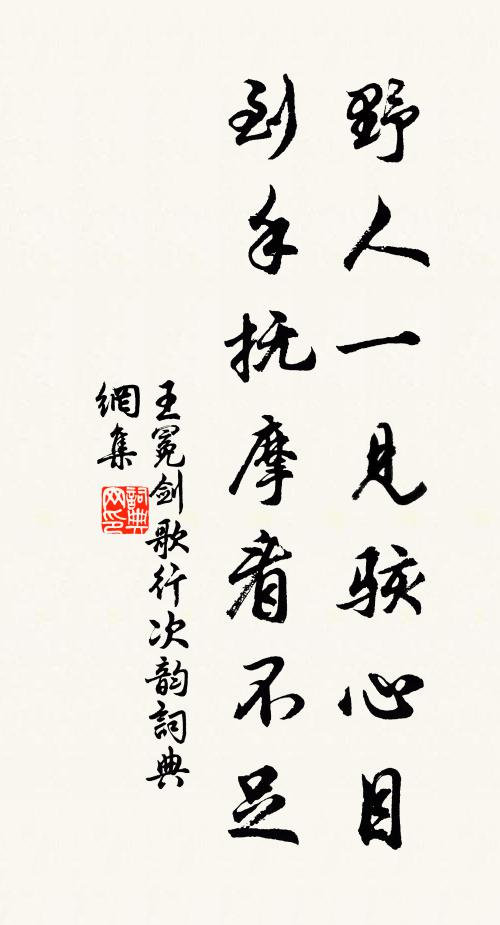 野人一見骇心目
到手抚摩看不足
王冕剑歌行次韵詞典
網集
詞典网印